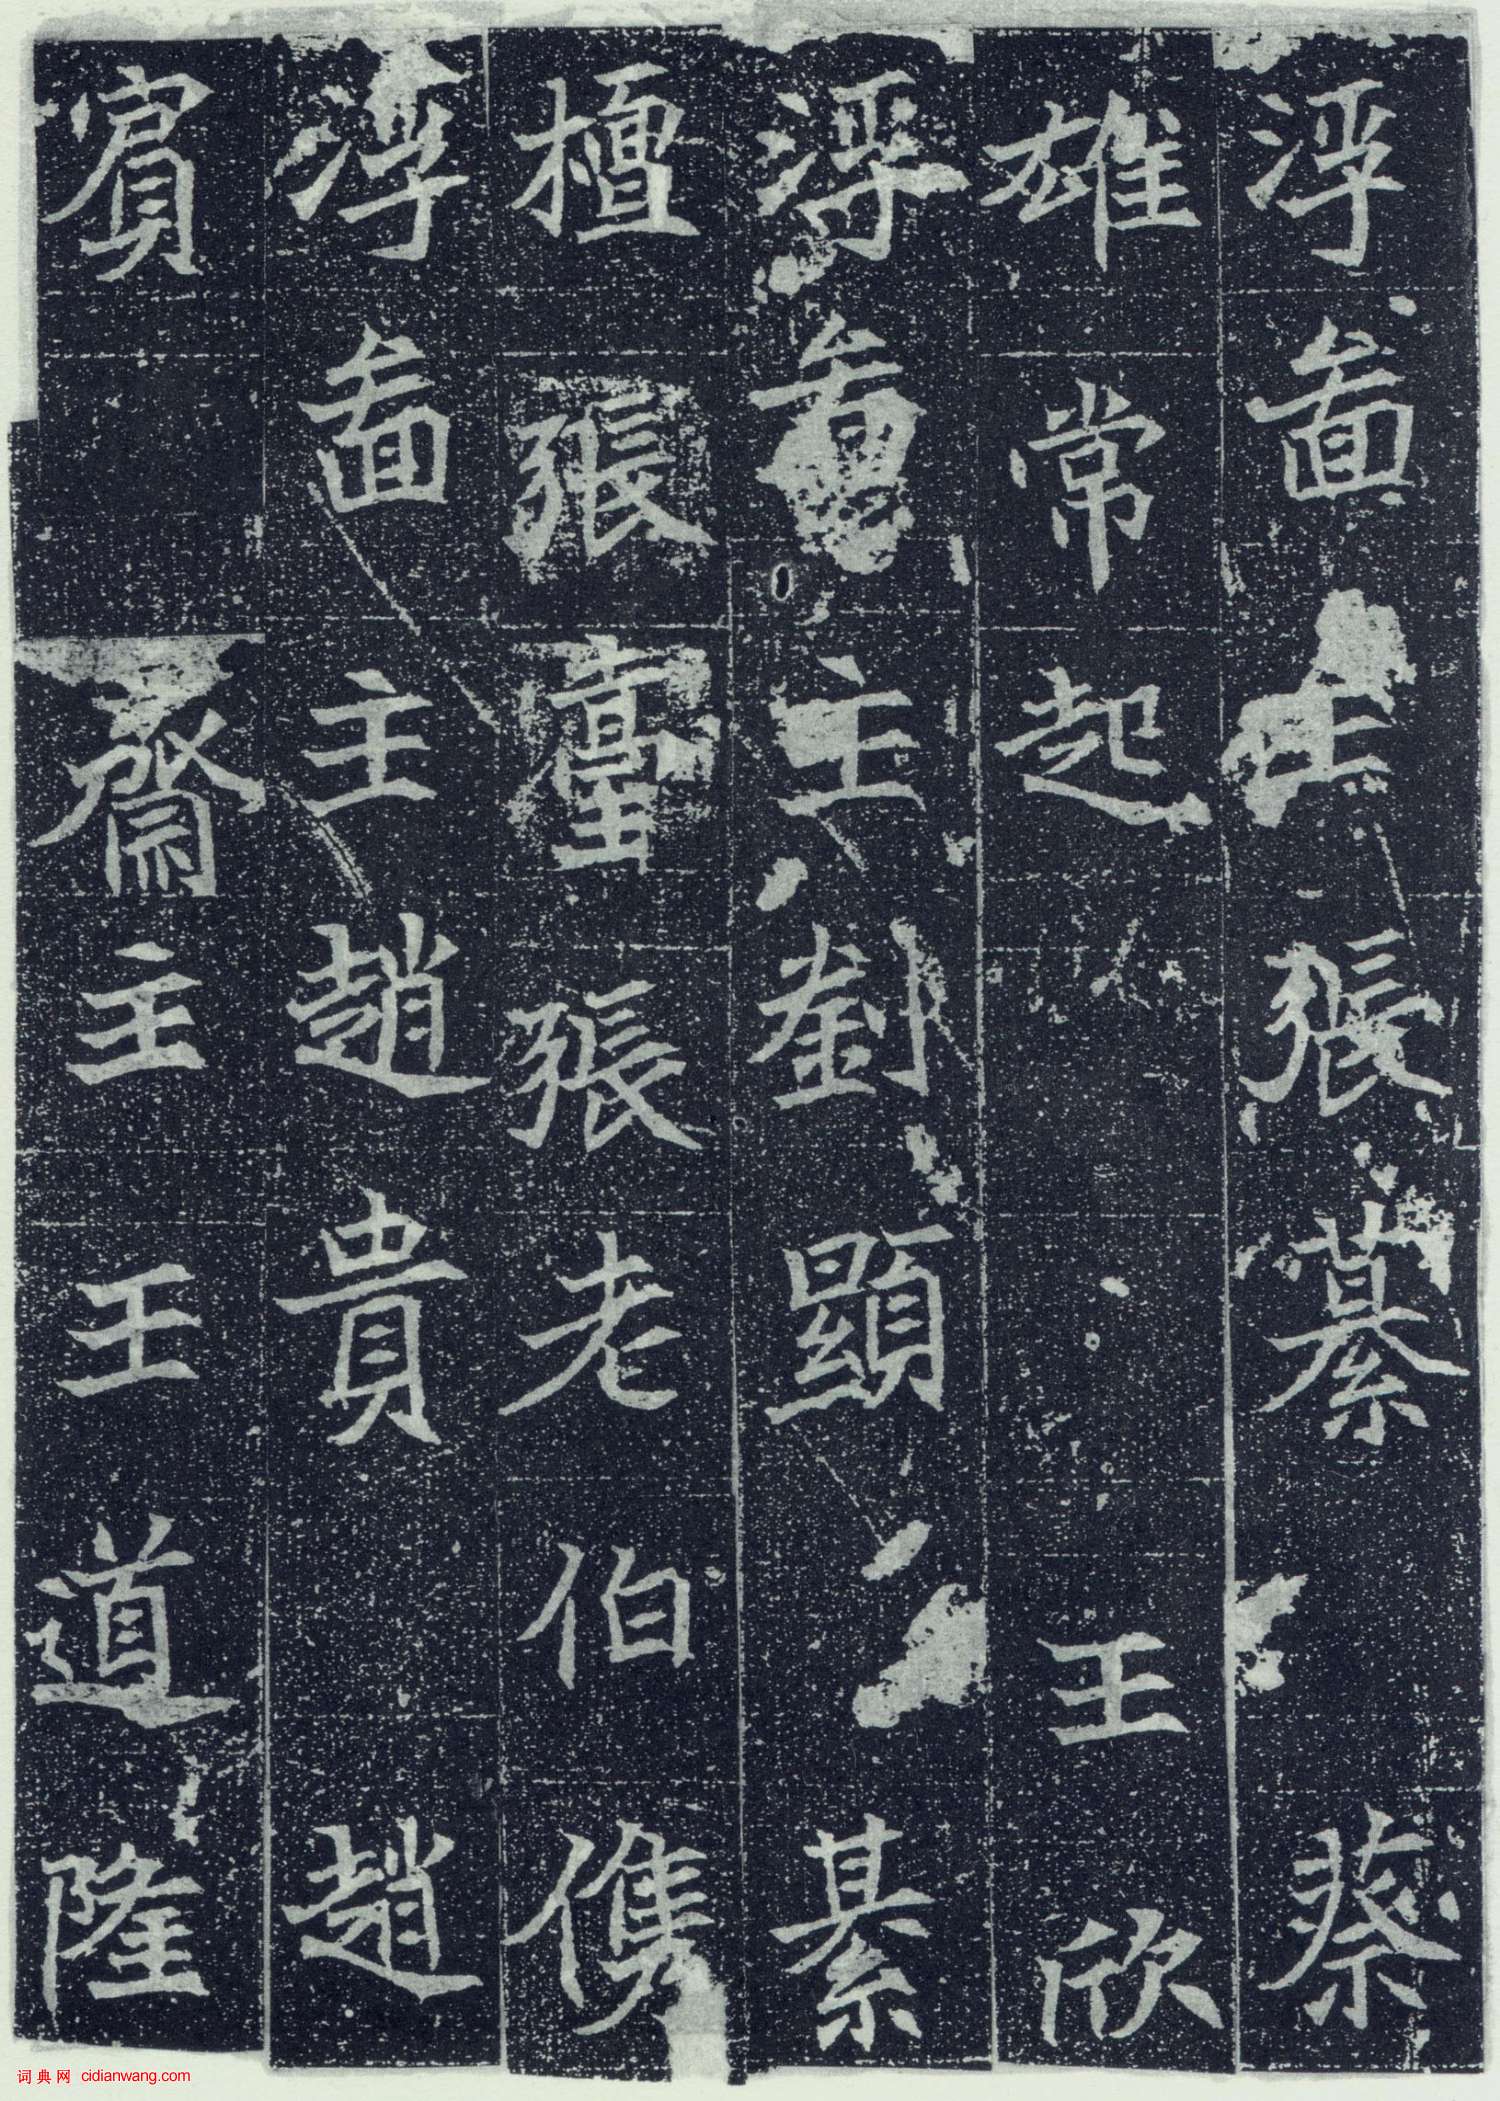 浮啚主張綦 蔡
雄常起 王欣
浮啚主劉顯 綦
檀張臺張老伯儁
浮啚主趙貴 趙
賓 齋主王道隆
词典网 cidianwang.com